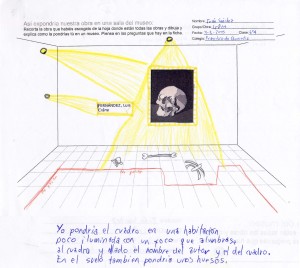 Así expondría nuestra obra en una sala del museo:
Recorta la obra que habéis escogido de la hoja donde están todas las obras y dibuja y
explica como la pondrías tú en un museo. Piensa en las preguntas que hay en la ficha.
Nombre:
Grupo/Obra:
Fecha:
Clase:
Colegio:
FERNÁNDEZ, Luis
Cráneo
Yo pondría el cuadro en una habitación
poco iluminada con un foco que alumbrase
al cuadro y al lado el nombre del autor y el del cuadro.
En el suelo tambien pondría unos huesos.